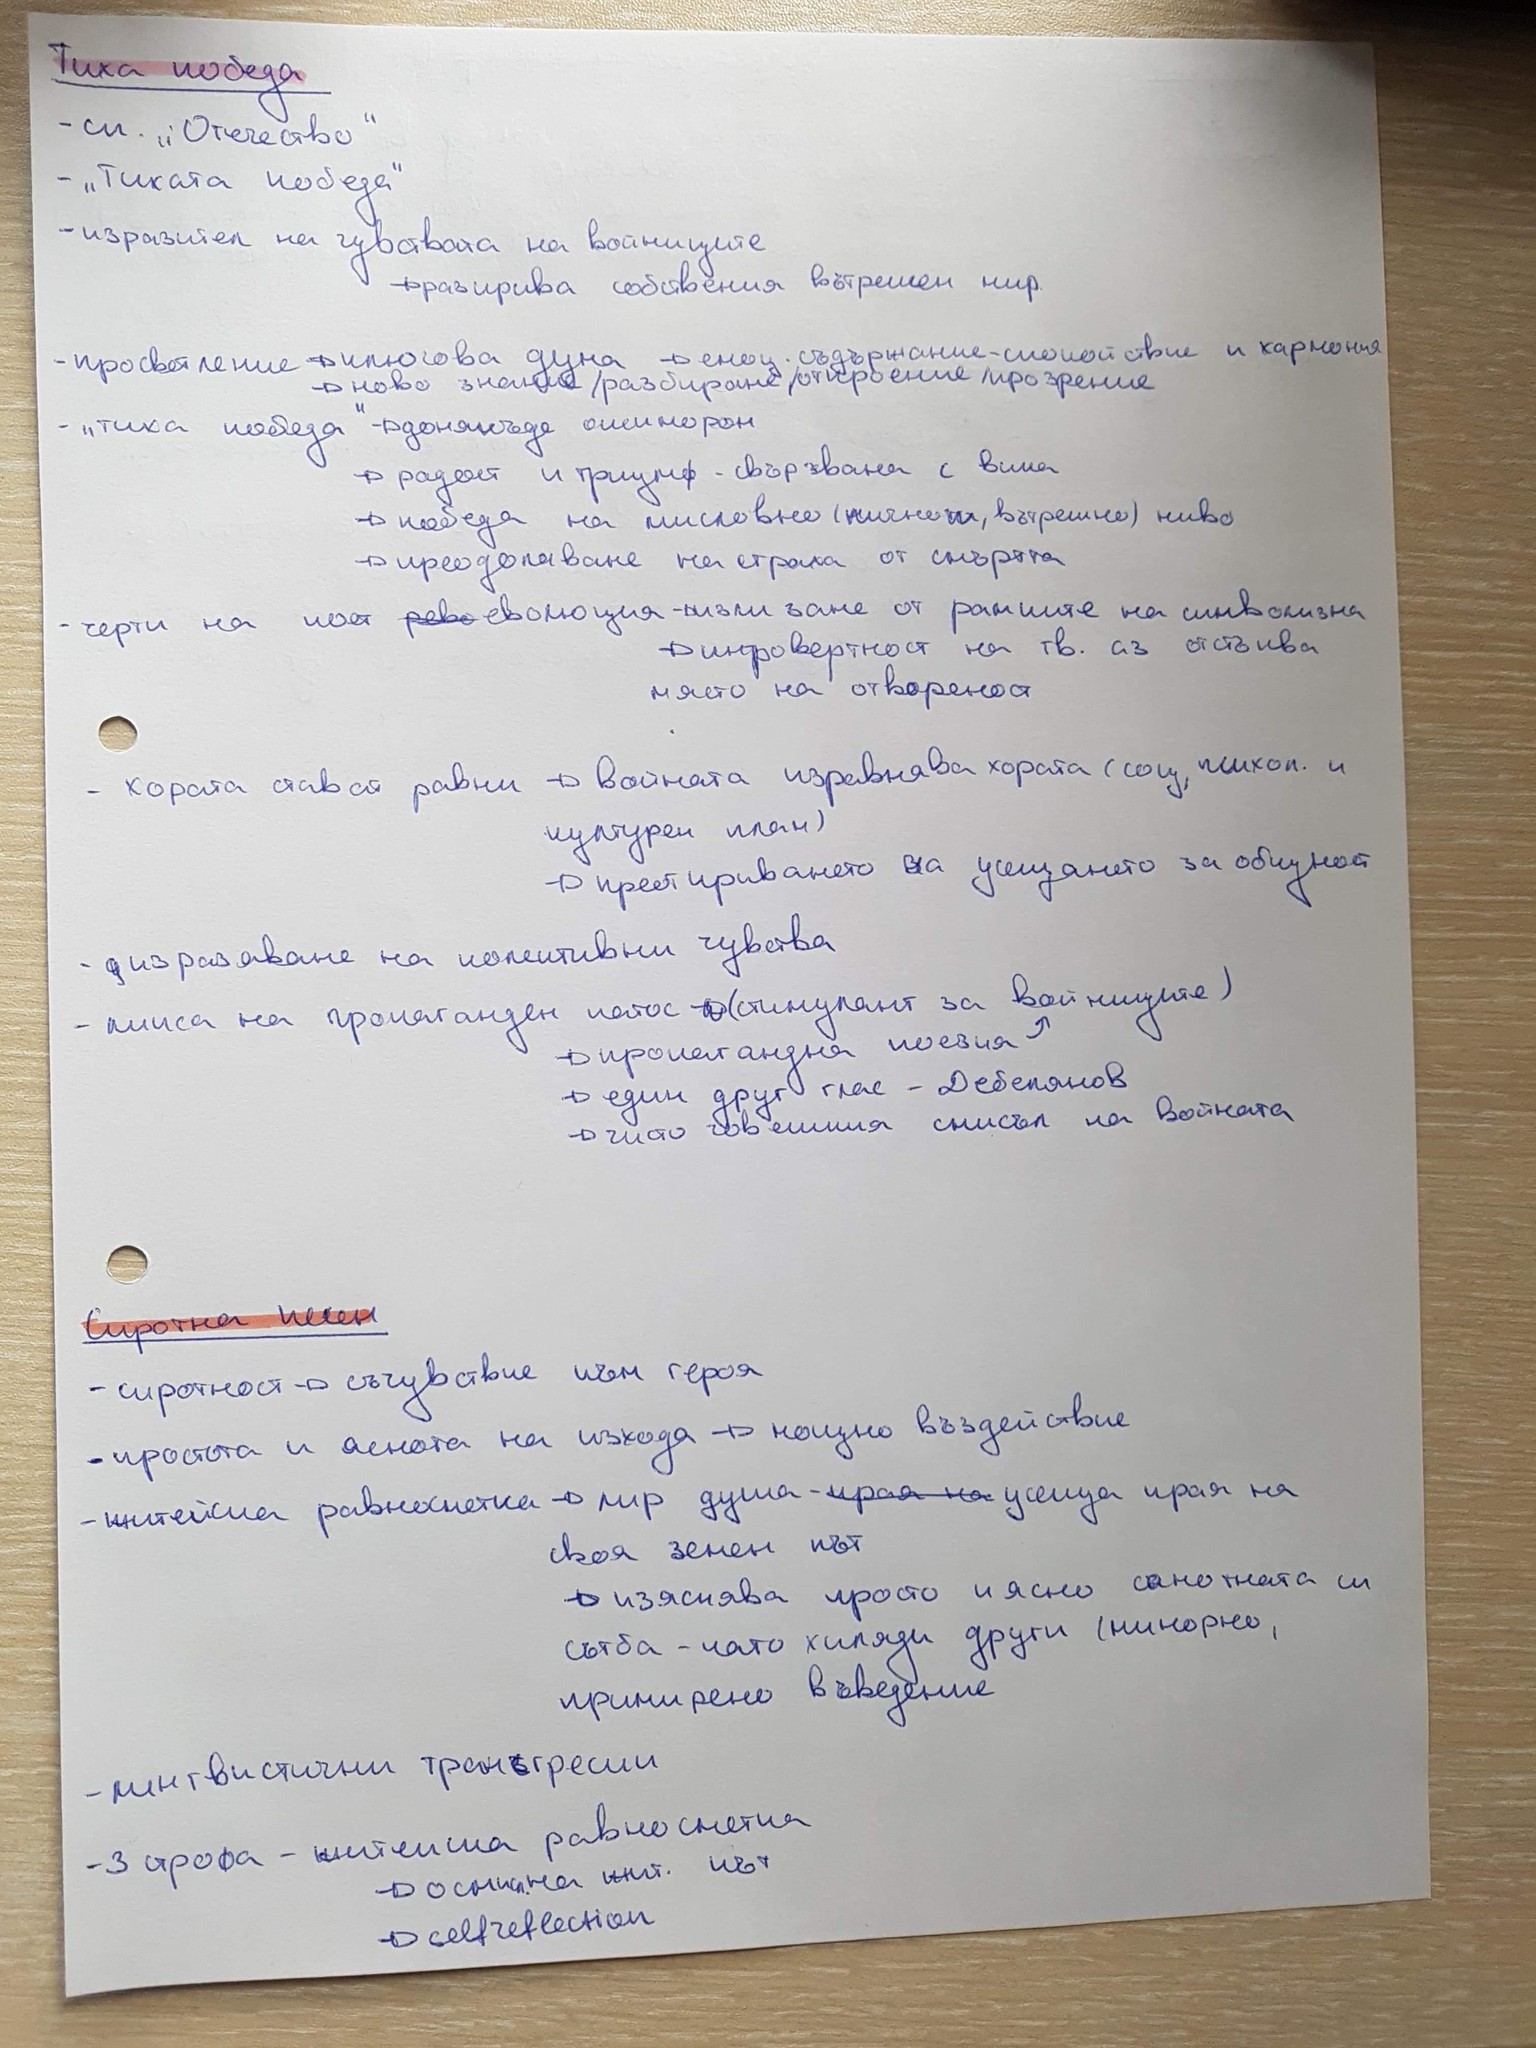 Тиха победа
- сп. „Отечество“
- „Тихата победа“
- изразител на чувствата на войниците
→ разкрива собствения вътрешен мир
- просветление → ключова дума → емоц. съдържание - спокойствие и хармония
→ ново знание /разбиране/откроение/прозрение
- „тиха победа“ → донякъде оксиморон
→ радост и триумф - свързвана с вина
→ победа на мисловно (лично, вътрешно) ниво
→ преодоляване на страха от смъртта
- черти на поет. рево еволюция - излизане от рамките на символизма
→ интровертност на тв. аз отстъпва
място на отвореност
- хората стават равни → войната изравнява хората (соц, психол. и
културен план)
→ пресъздаването на усещането за общност
- изразяване на колективни чувства
- липса на пропаганден патос → (стимулант за войниците)
→ пропагандна поезия
→ един друг глас - Дебелянов
→ чисто човешкия смисъл на войната
Сиротна песен
- сиротност → съчувствие към героя
- простота и яснота на изхода → мощно въздействие
- житейска равносметка → лир душа - края на усеща края на
своя земен път
→ изяснява просто и ясно самотната си
сътба - като хиляди други (минорно,
примирено въведение
- лингвистични трансгресии
- 3 строфа - житейска равносметка
→ осмисл. на жит. път
→ selfreflection